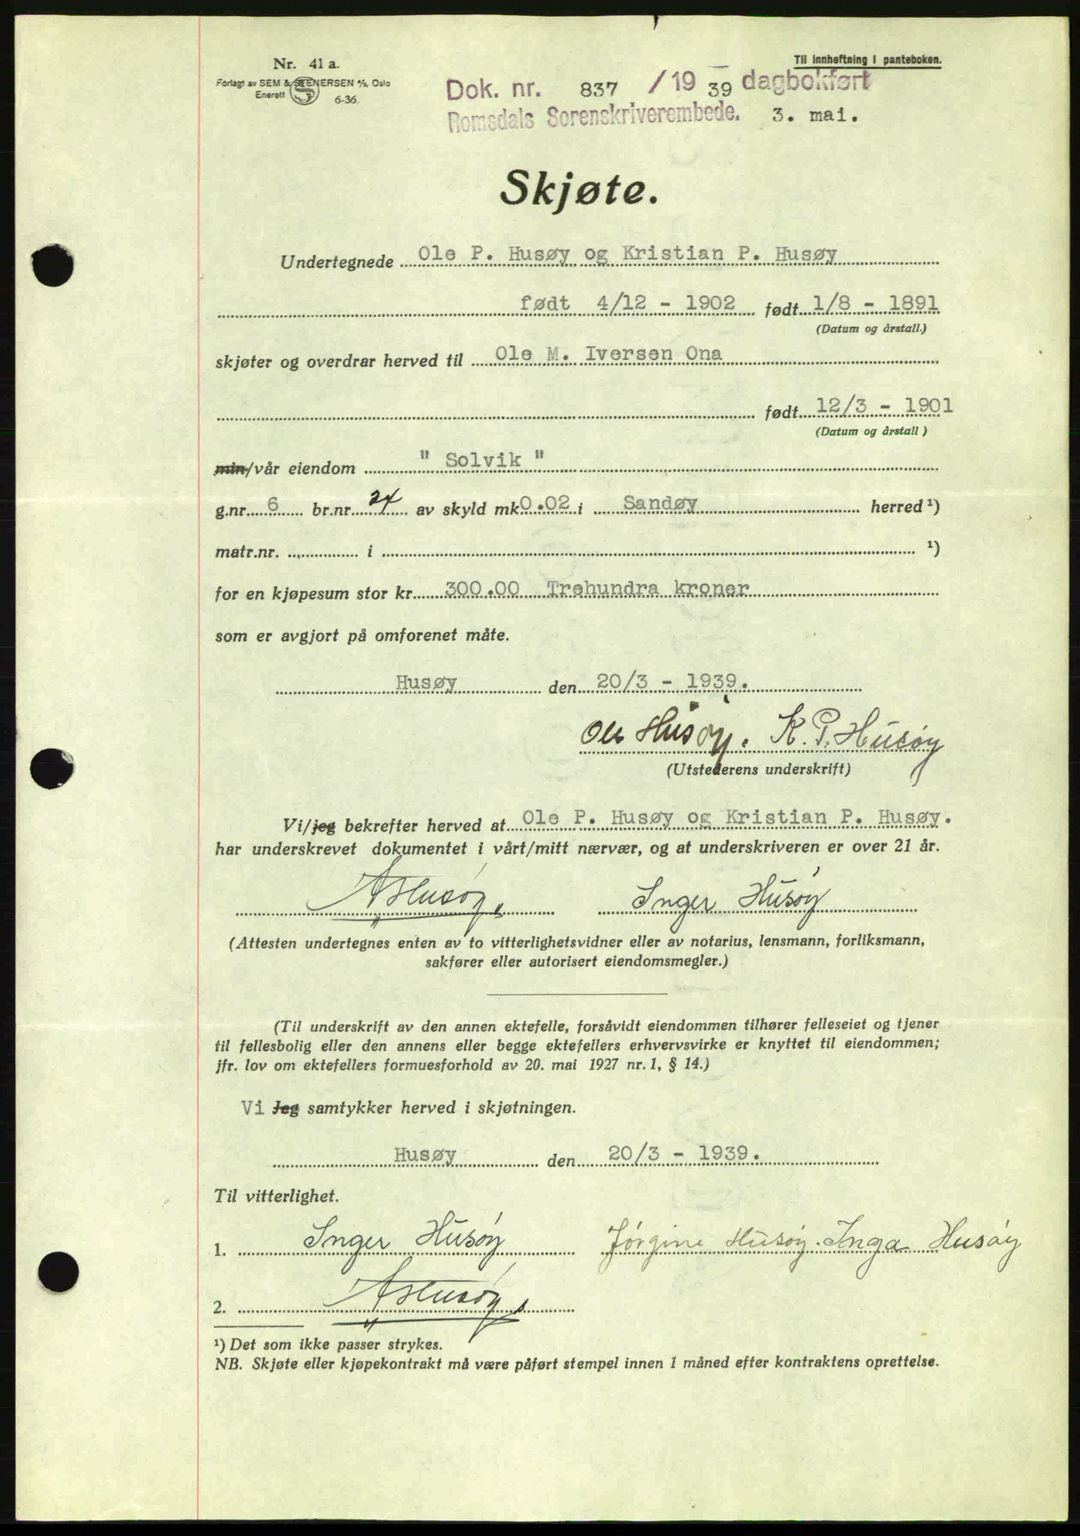 Nr. 41 a.
Forlagt av SEM & STENERSEN A/S, Oslo
Enerett 6-36.
Til innheftning i panteboken.
Dok. nr. 837 / 19 39 dagbokført
Romsdals Sorenskriverembede. 3. mai.
Skjøte.
Undertegnede Ole P. Husøy og Kristian P. Husøy
født 4/12 - 1902 født 1/8 - 1891
(Datum og årstall.)
skjøter og overdrar herved til Ole M. Iversen Ona
født 12/3 - 1901
(Datum og årstall)
min/vår eiendom " Solvik "
g.nr. 6 br.nr. 24 av skyld mk 0.02 i Sandøy herred ¹)
matr.nr. i ¹)
for en kjøpesum stor kr. 300.00 Trehundra kroner
som er avgjort på omforenet måte.
Husøy den 20/3 - 1939.
Ole Husøy. K. P. Husøy
(Utstederens underskrift)
Vi/jeg bekrefter herved at Ole P. Husøy og Kristian P. Husøy.
har underskrevet dokumentet i vårt/mitt nærvær, og at underskriveren er over 21 år.
A Husøy Inger Husøy
(Attesten undertegnes enten av to vitterlighetsvidner eller av notarius, lensmann, forliksmann,
sakfører eller autorisert eiendomsmegler.)
(Til underskrift av den annen ektefelle, forsåvidt eiendommen tilhører felleseiet og tjener
til fellesbolig eller den annens eller begge ektefellers erhvervsvirke er knyttet til eiendommen;
jfr. lov om ektefellers formuesforhold av 20. mai 1927 nr. 1, § 14.)
Vi Jeg samtykker herved i skjøtningen.
Husøy den 20/3 - 1939.
Til vitterlighet.
1. Inger Husøy Jørgine Husøy. Inga Husøy
2. A Husøy
¹) Det som ikke passer strykes.
NB. Skjøte eller kjøpekontrakt må være påført stempel innen 1 måned efter kontraktens oprettelse.